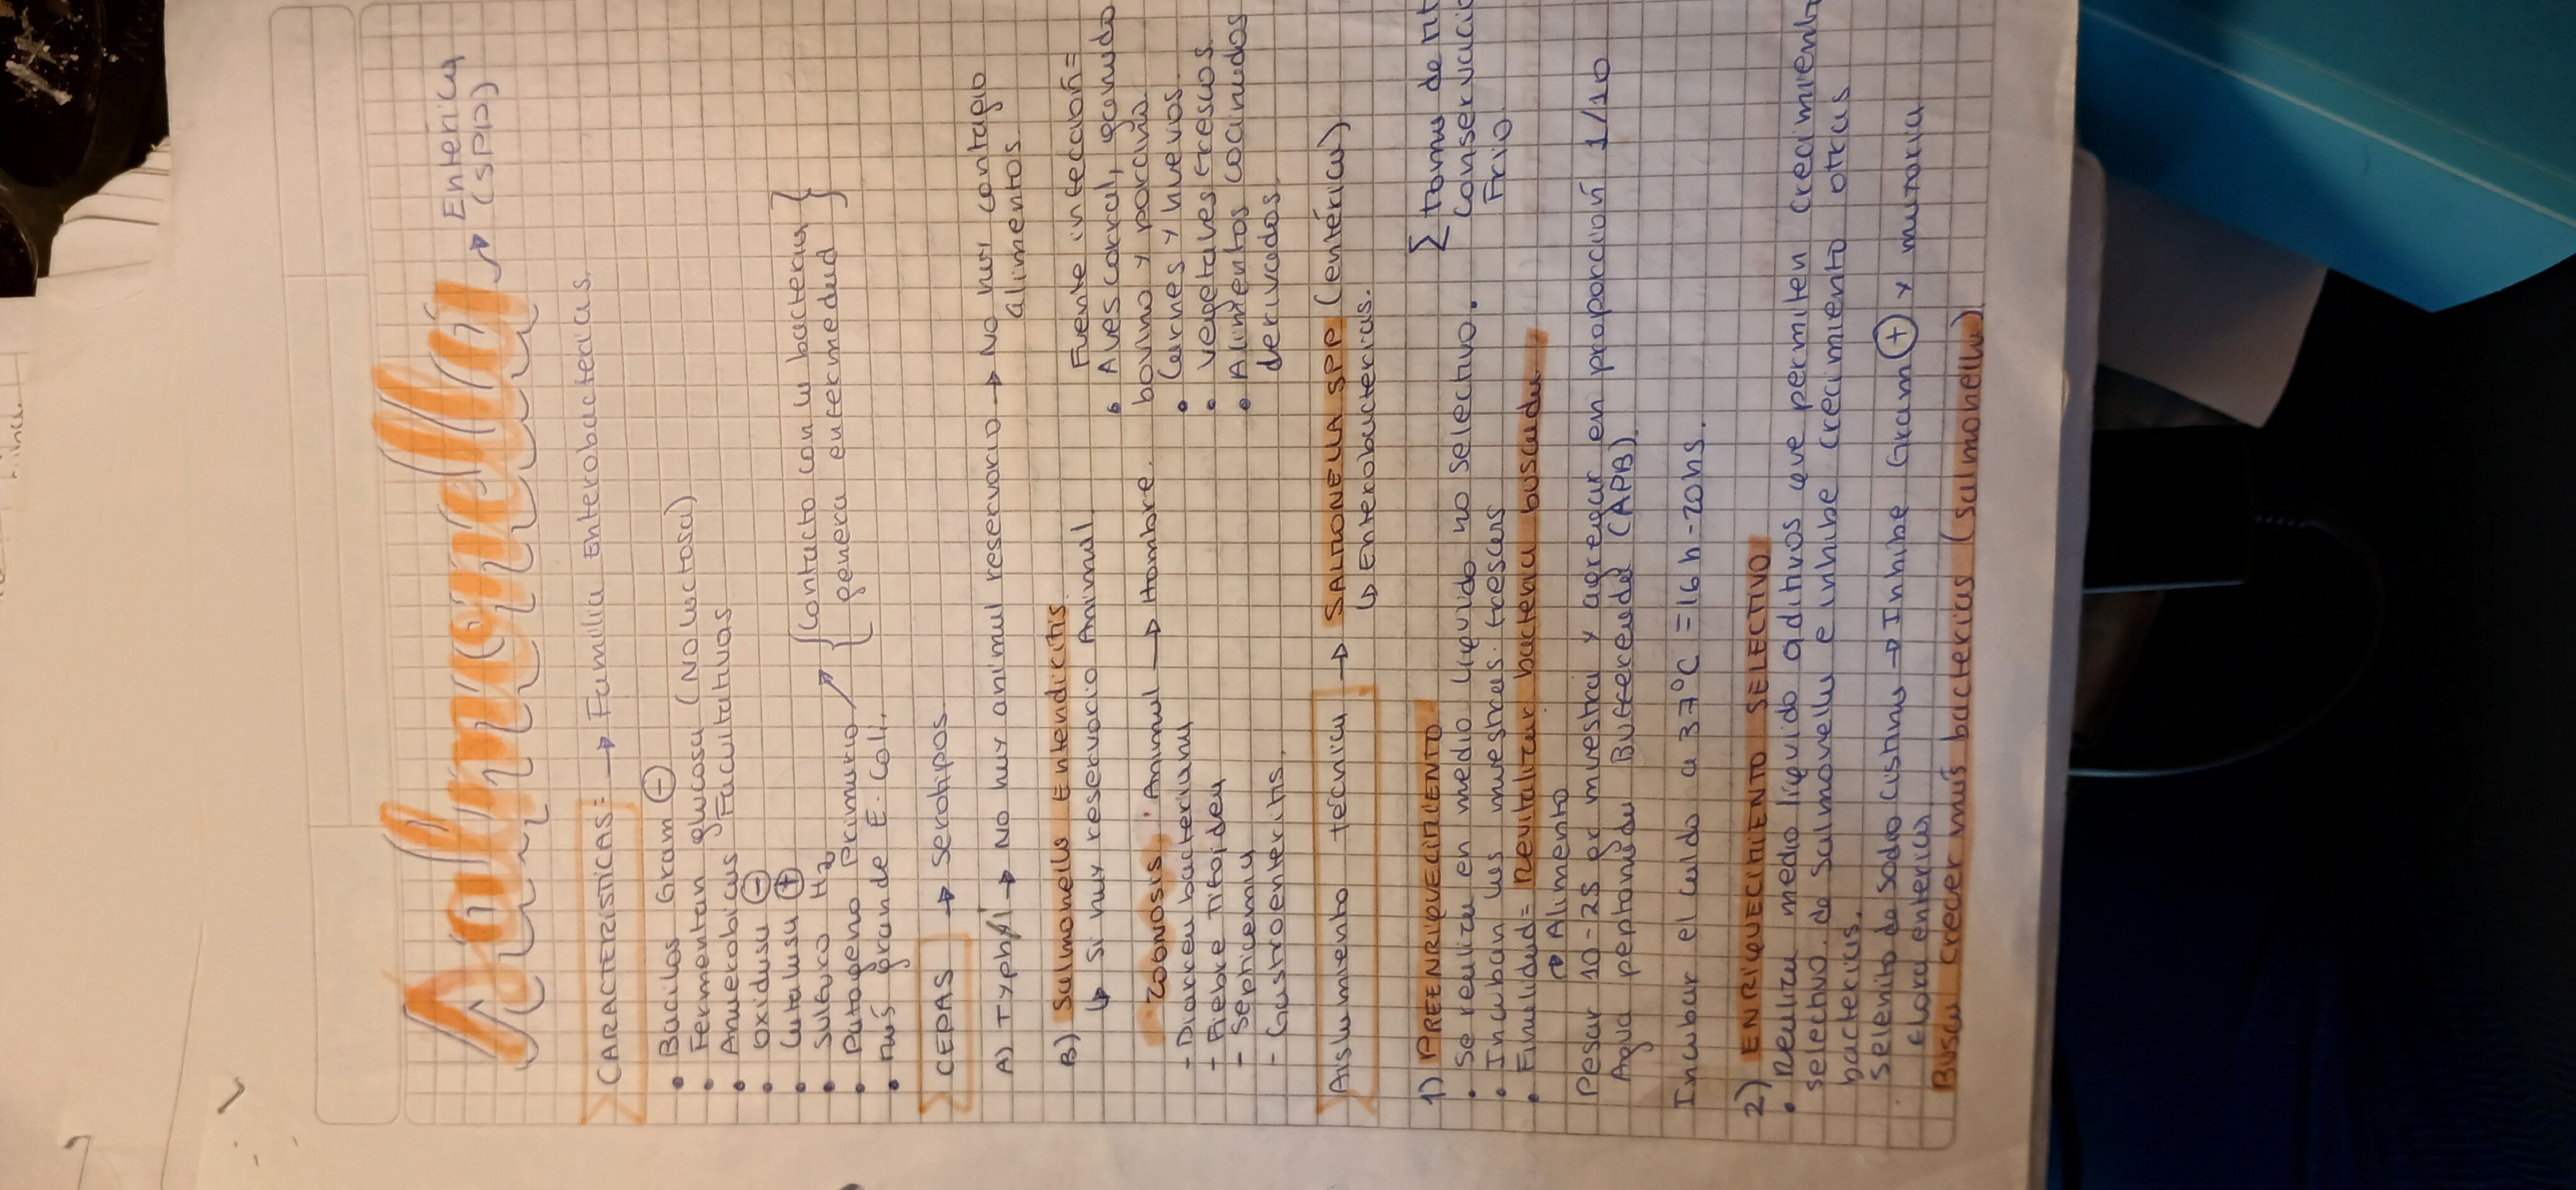 Salmonella → Enterica
(SPP)
CARACTERISTICAS: → Familia Enterobacterias.
• Bacilos Gram (-)
• Fermentan glucosa (No lactosa)
• Anaerobicas Facultativas
• Oxidasa (-)
• Catalasa (+)
• Sulfuro H2
• Patogeno primario → { Contacto con la bacteria }
{ genera enfermedad }
• Más grande E. Coli.
CEPAS → Serotipos
A) Typhi → No hay animal reservorio → No hay contagio
alimentos.
B) Salmonella Entendicitis
↳ Si hay reservorio Animal.
Zoonosis: Animal → Hombre.
- Diarrea bacteriana
- Fiebre Tifoidea
- Septicemia
- Gastroenteritis.
Fuente infección=
• Aves corral, ganado
bovino y porcino.
• Carnes y huevos
• Vegetales frescos.
• Alimentos cocinados
derivados.
Aislamiento técnica → SALMONELLA SPP (entérica)
↳ Enterobacterias.
1) PREENRIQUECIMIENTO
• Se realiza en medio liquido no selectivo.
• Incuban las muestras frescas
• Finalidad= Revitalizar bacteria buscada
Σ Toma de
Conservació
Frio.
→ Alimento
Pesar 10-25 gr muestra y agregar en proporción 1/10
Agua peptonada Buffereada (APB).
Incubar el caldo a 37°C = 16h-20hs.
2) ENRIQUECIMIENTO SELECTIVO
• Realiza medio liquido aditivos que permiten crecimient
selectivo de Salmonella e inhibe crecimiento otras
bacterias.
Selenito de Sodio Cistina → Inhibe Gram (+) y mayoria
flora enterica.
Busca crecer más bacterias (salmonella)